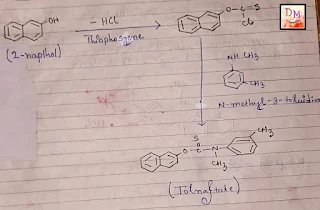 DM
OH
- HCl
Thiophosgene
O - C = S
Cl
(2-napthol)
NH CH3
CH3
N-methyl-3-toluidin
S
CH3
O - C - N
CH3
(Tolnaftate)